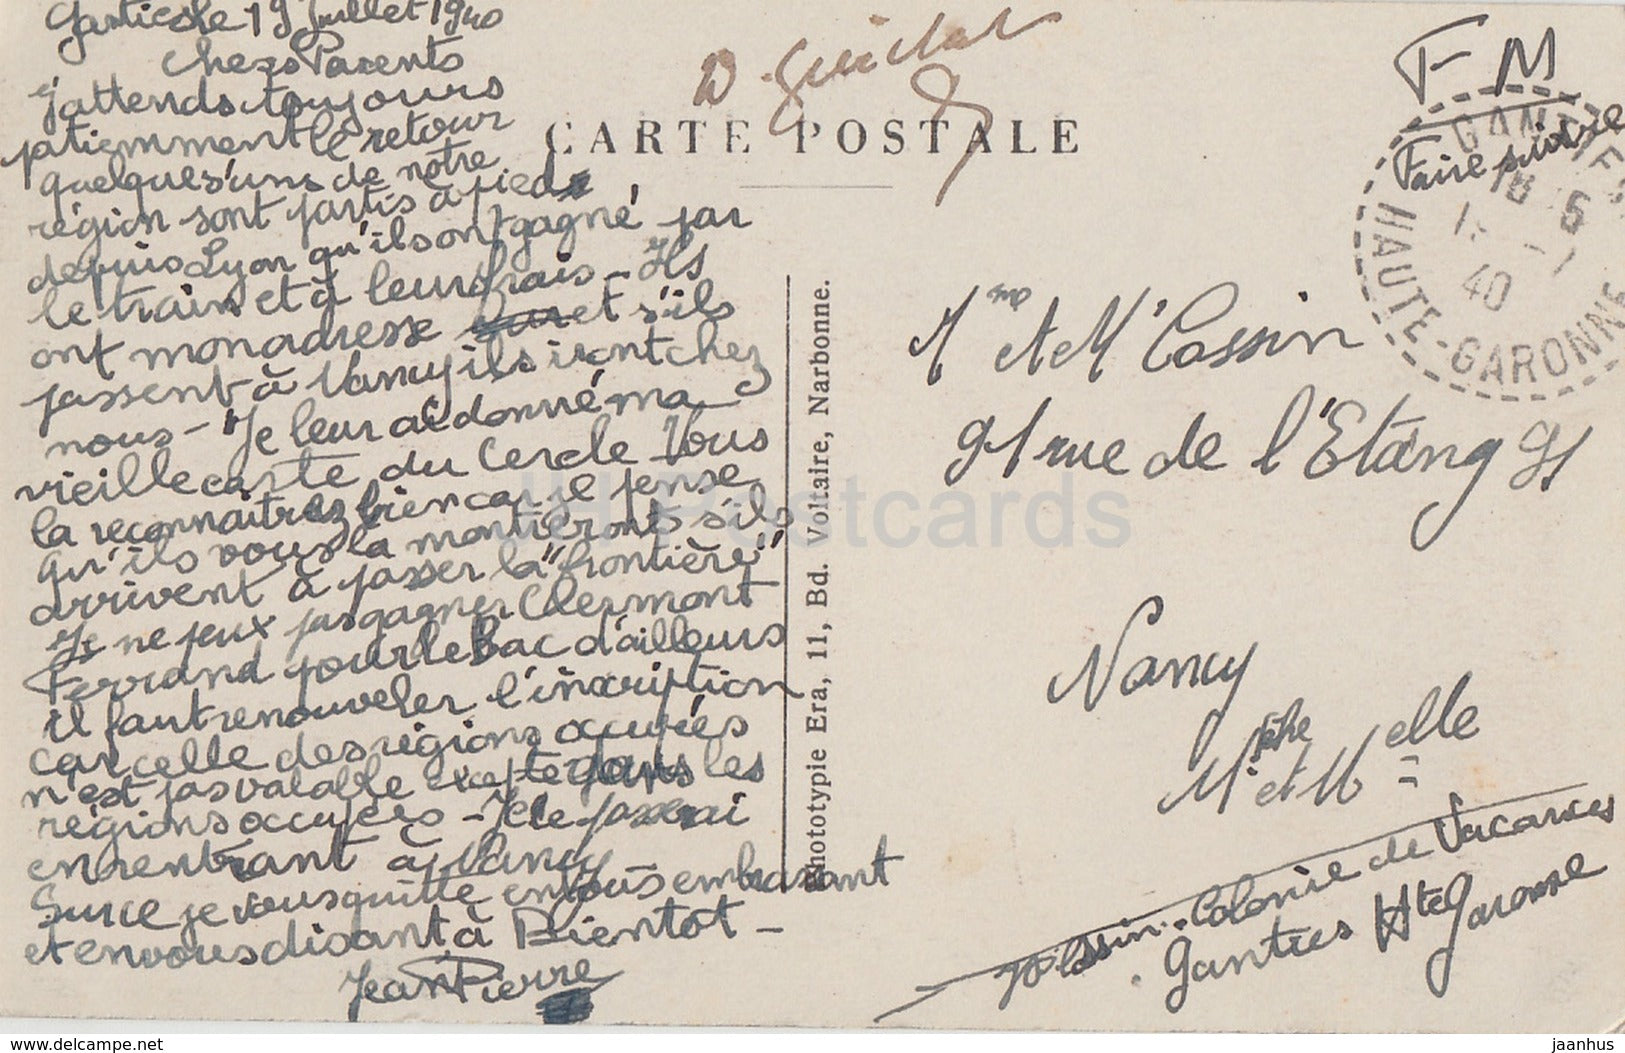 Ganties le 19 Juillet 1940
Chers Parents
J'attends toujours
patiemment le retour
quelques'uns de notre
région sont partis à pieds
depuis Lyon qu'ils ont gagné par
le train et à leurs frais - Ils
ont mon adresse et s'ils
passent à Nancy ils iront chez
nous - Je leur ai donné ma
vieille carte du Cercle Vous
la reconnaitrez bien car je pense
qu'ils vous la montreront s'ils
arrivent à passer la "frontière"
Je ne peux pas gagner Clermont
Ferrand pour le Bac d'ailleurs
il faut renouveler l'inscription
car celle des régions occupées
n'est pas valable excepté dans les
régions occupées - Je le passerai
en rentrant à Nancy
Sur ce je vous quitte en vous embrassant
et en vous disant à Bientot -
Jean Pierre
CARTE POSTALE
Phototypie Era, 11, Bd. Voltaire, Narbonne.
F M
Faire suivre
GANTIES
18 5
1 - 7
40
HAUTE-GARONNE
M et M Cassin
91 rue de l'Etang 91
Nancy
M et M elle
Colonie de Vacances
Ganties Hte Garonne
JH Postcards
eu.delcampe.net
jaanhus